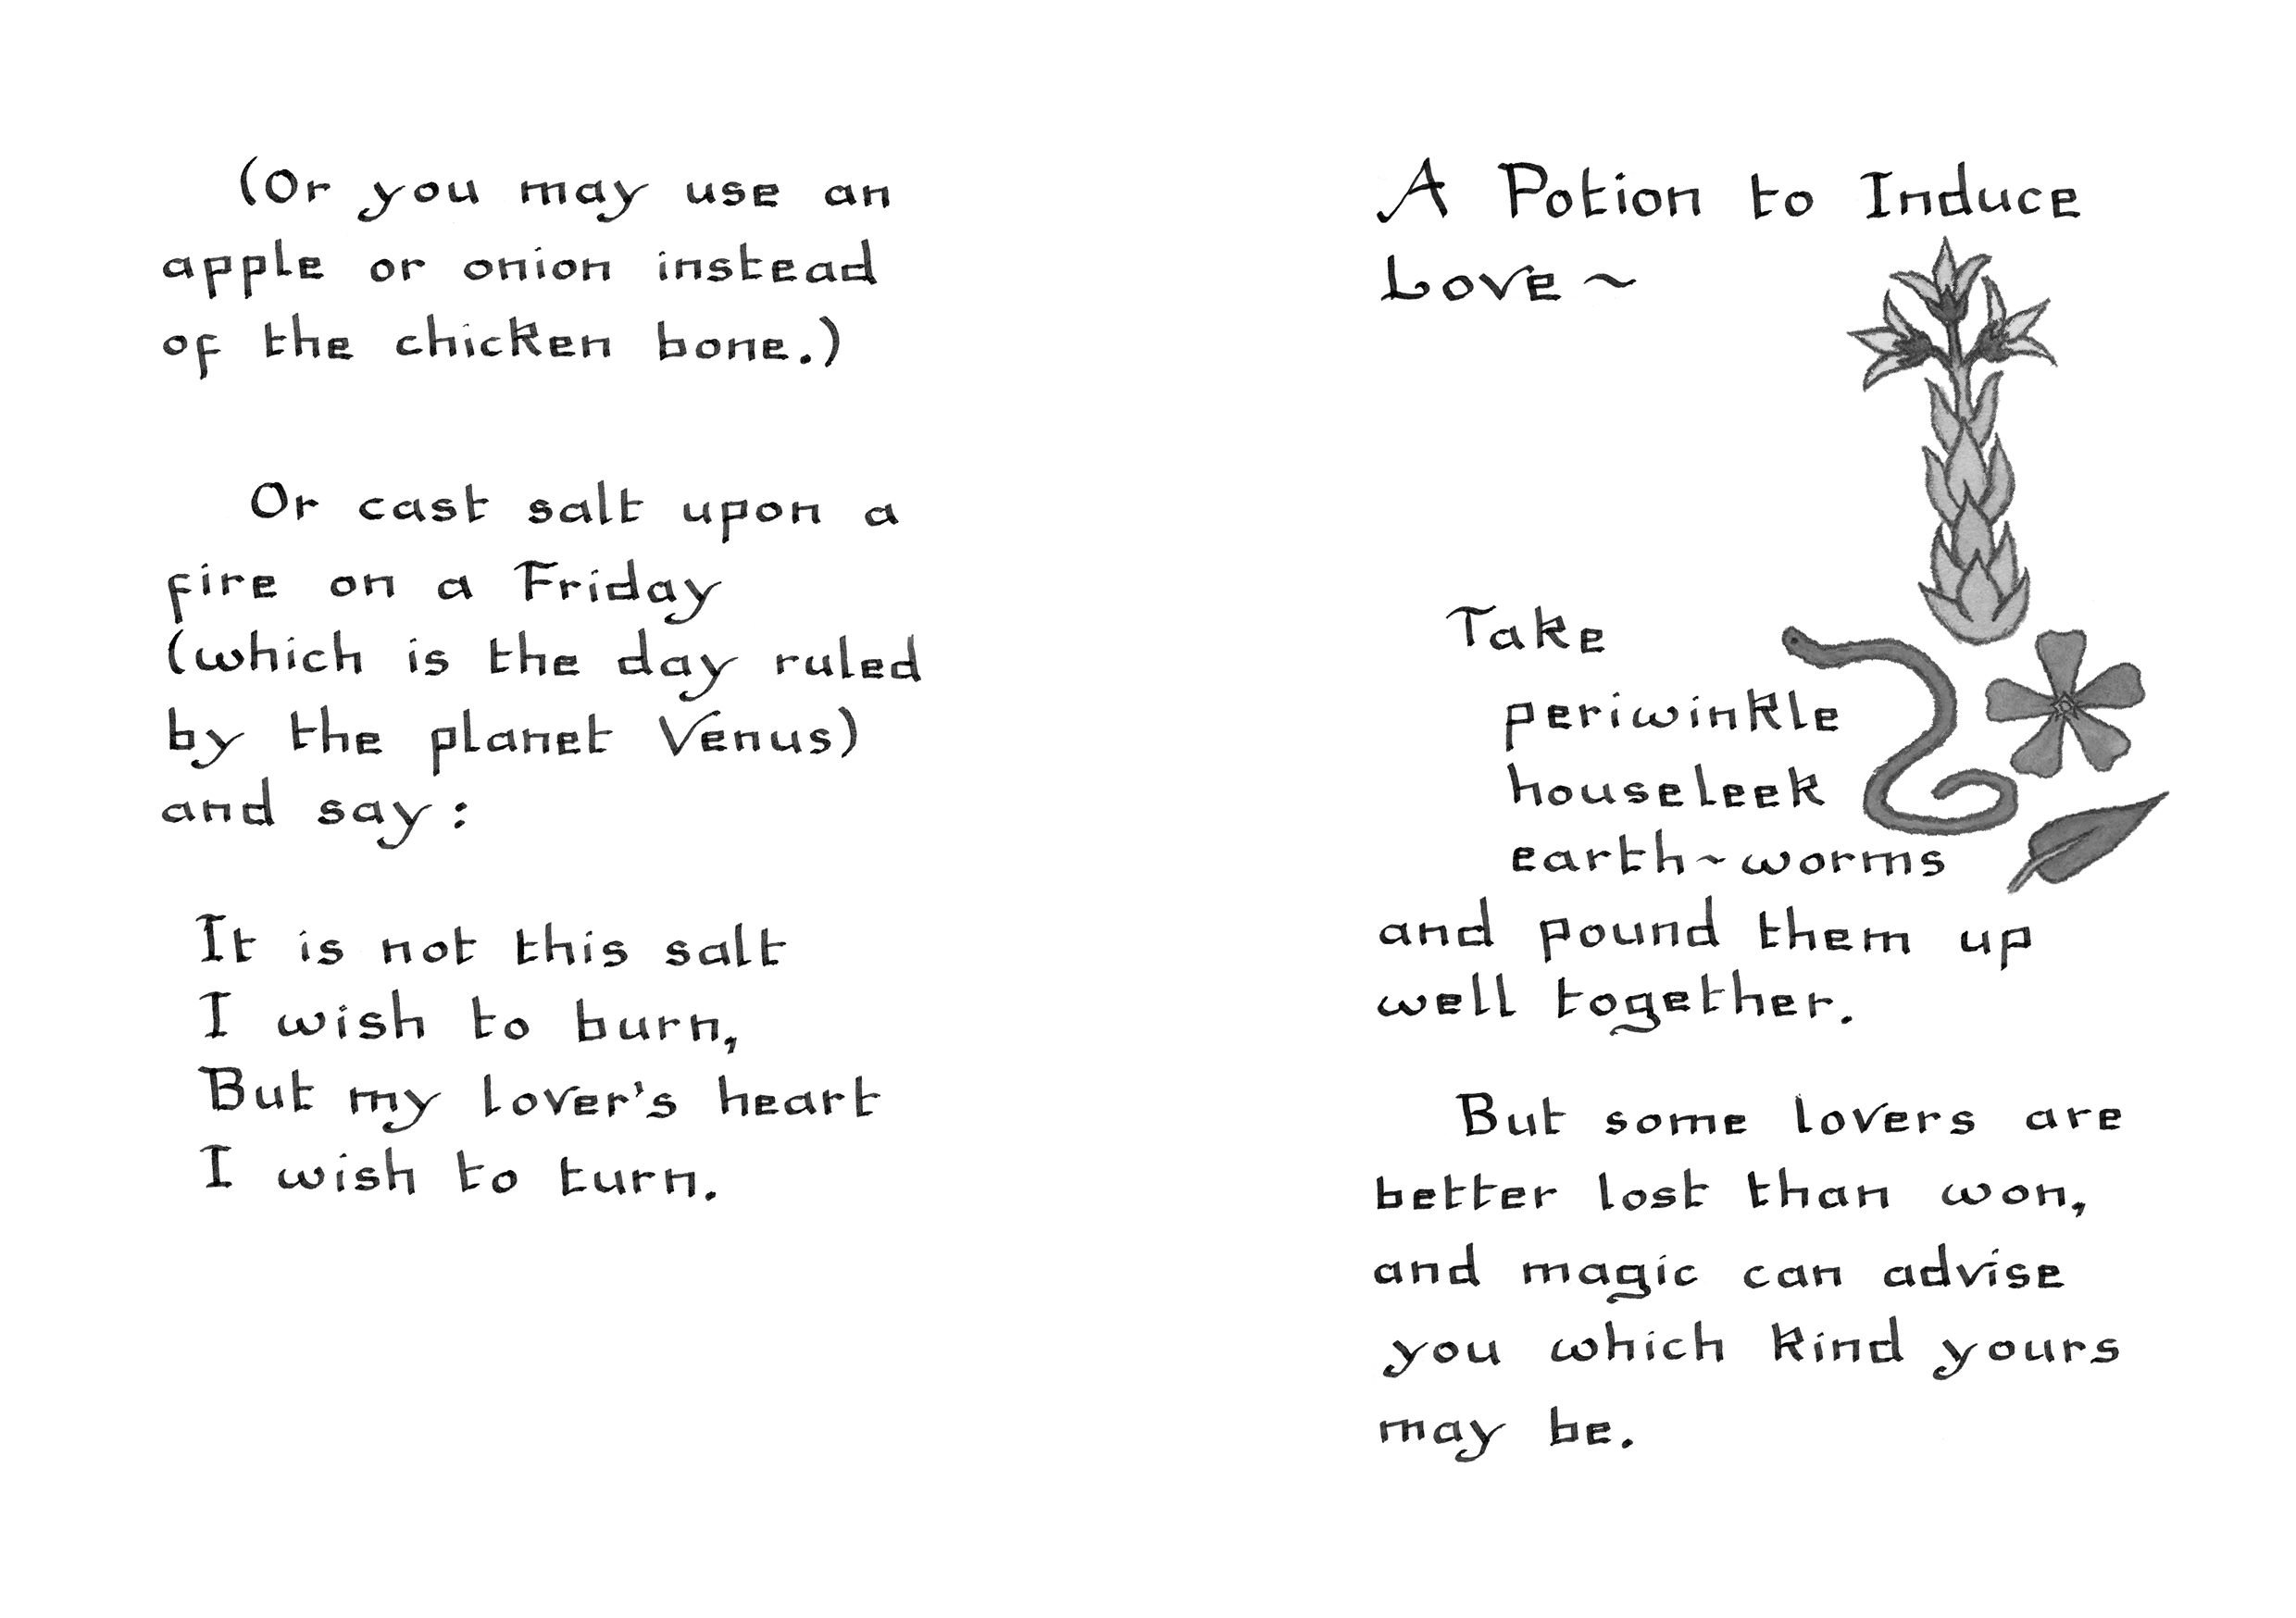 (Or you may use an
apple or onion instead
of the chicken bone.)
Or cast salt upon a
fire on a Friday
(which is the day ruled
by the planet Venus)
and say:
It is not this salt
I wish to burn,
But my lover's heart
I wish to turn.
A Potion to Induce
Love ~
Take
periwinkle
houseleek
earth~worms
and pound them up
well together.
But some lovers are
better lost than won,
and magic can advise
you which kind yours
may be.